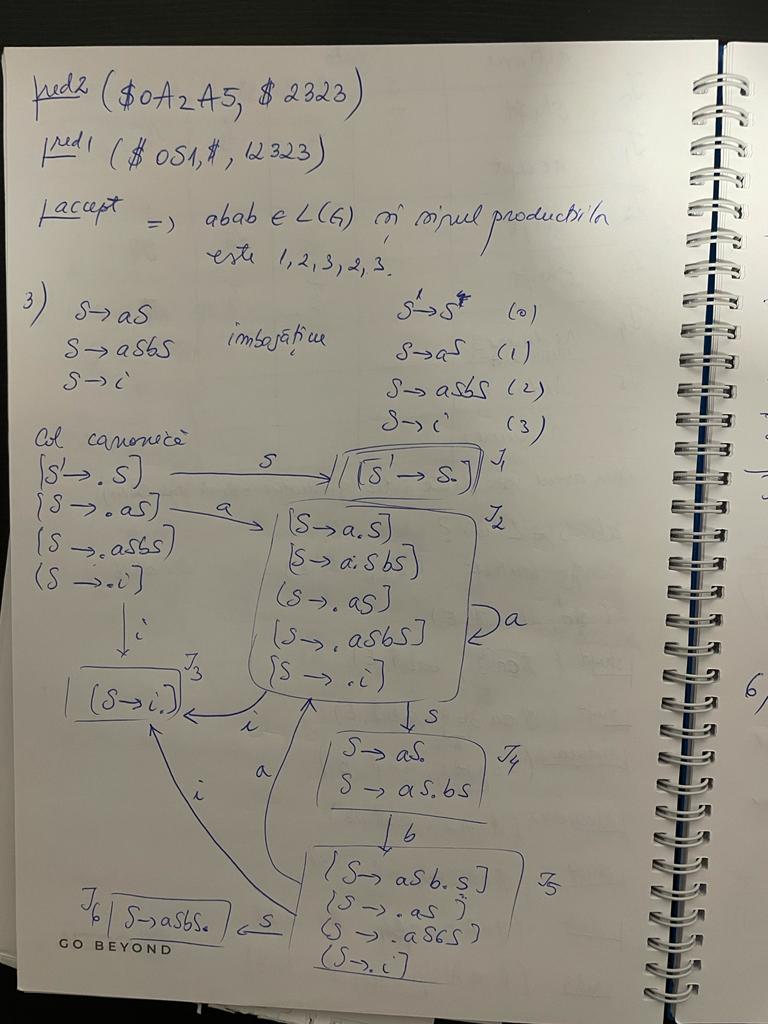 red2 ($0A2A5, $ 2323)
red1 ($ 0S1,$, 12323)
accept => abab ∈ L(G) și șirul producțiilor
este 1,2,3,2,3.
3) S→aS S'→S (0)
S→aSbS îmbogățire S→aS (1)
S→i S→aSbS (2)
S→i (3)
Col canonică
[S'→.S] S [S'→S.] I1
[S→.aS] a [S→a.S] I2
[S→.aSbS] [S→a.SbS]
[S→.i] [S→.aS] a
i [S→.aSbS]
[S→.i]
[S→i.] I3 i S
S→aS. I4
S→aS.bS
i a b
[S→aSb.S] I5
[S→.aS]
[S→.aSbS]
[S→.i]
I6 S→aSbS. S
GO BEYOND